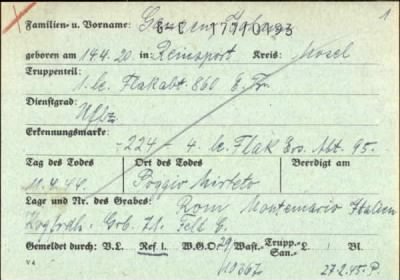 1
Familien- u. Vorname:
G-C 17710493
geboren am 14.4.20 in: Reinsport Kreis: Mosel
Truppenteil:
1. le. Flakabt. 860 E. Tr.
Dienstgrad:
Uffz.
Erkennungsmarke:
-224- 4. le. Flak Ers. Abt. 95.
Tag des Todes Ort des Todes Beerdigt am
11.4.44. Poggio Mirteto
Lage und Nr. des Grabes: Rom Montemario Italien
Grb. 71. Feld 6.
Gemeldet durch: V.L. Ref 1. W.G.O. 29 Wast.- Trupp.- San.- L. Bl.
27.2.45. P.
V 4